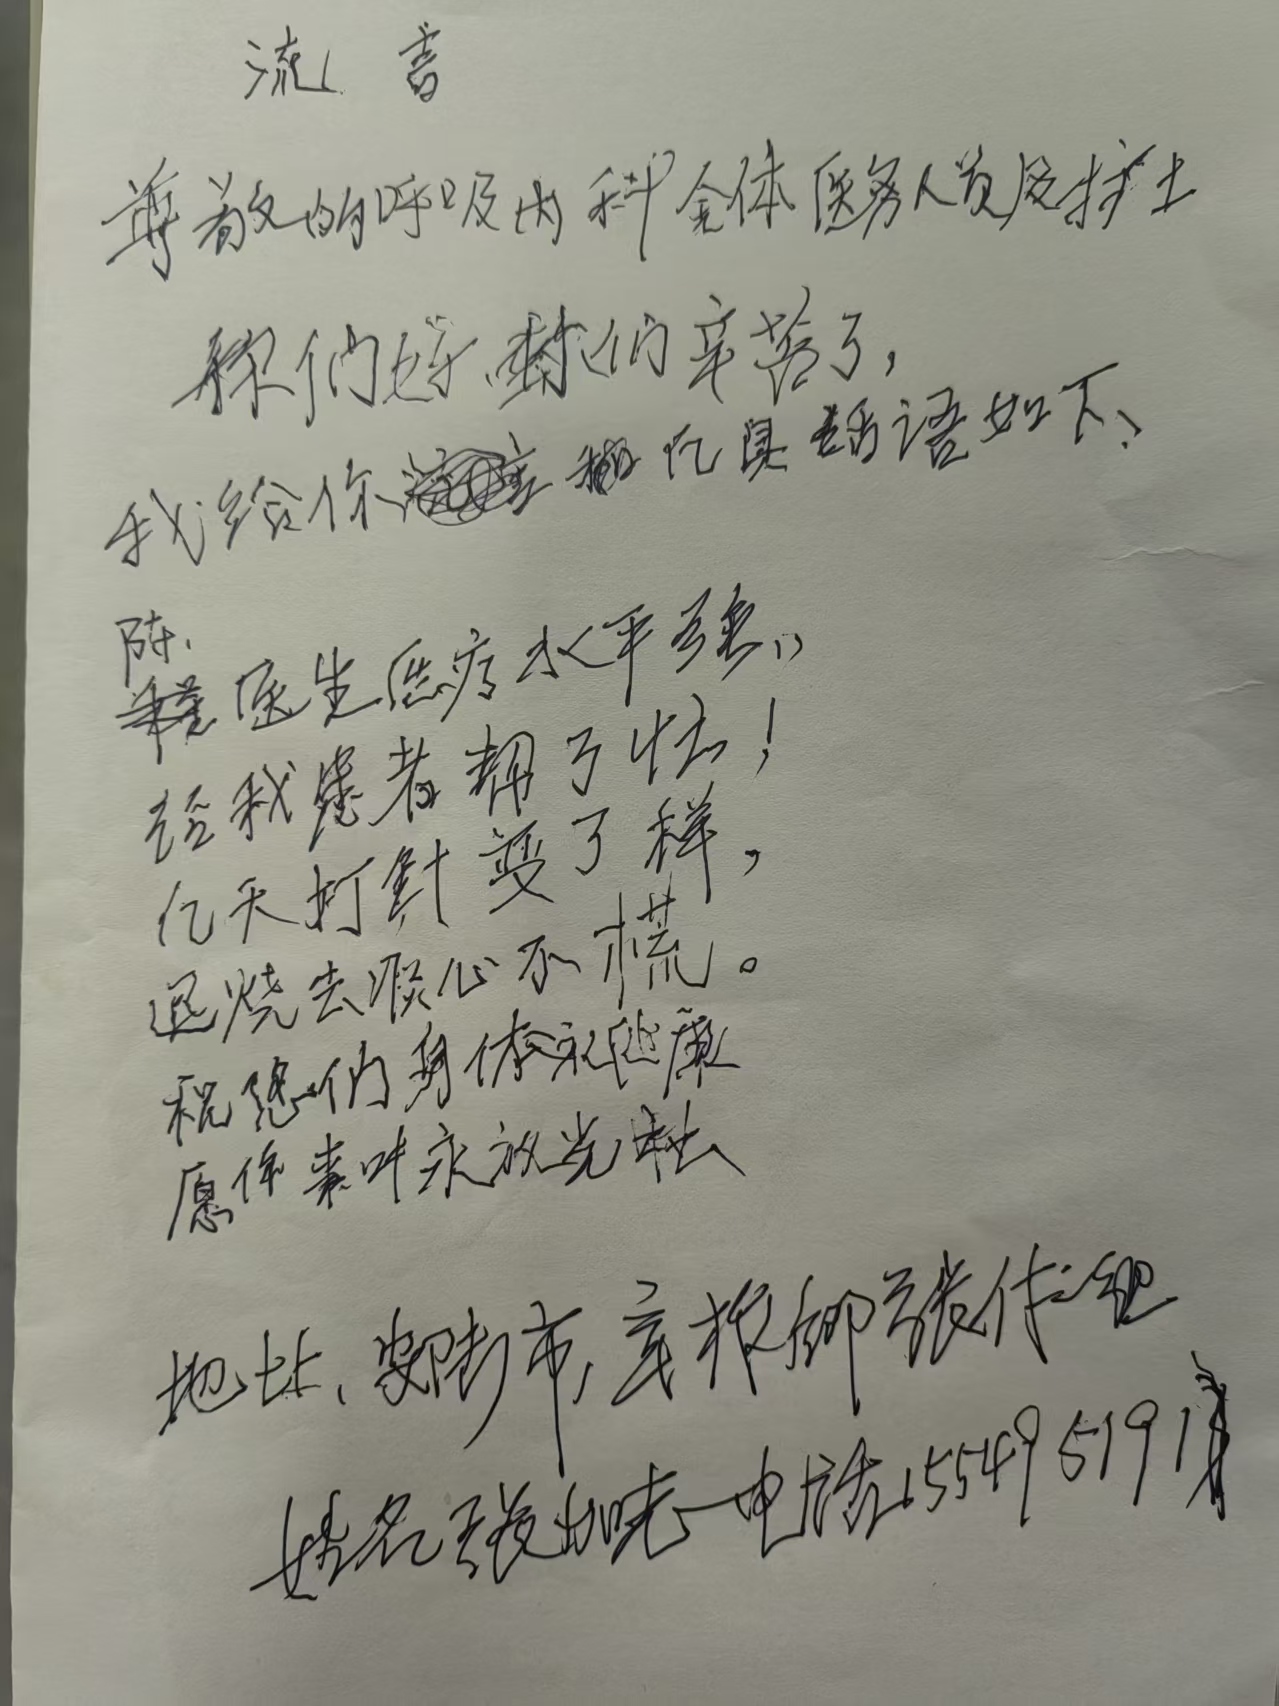 流言
尊敬的呼吸内科全体医务人员及护士
你们好，你们辛苦了，
我给你 亿具话语如下、
陈
医生医疗水平强，
给我患者帮了忙！
亿天打针变了样，
退烧去痰心不慌。
祝您们身体永健康
愿你事叶永放光
地址、安陆市、辛榨乡张
姓名 张 电话15549519